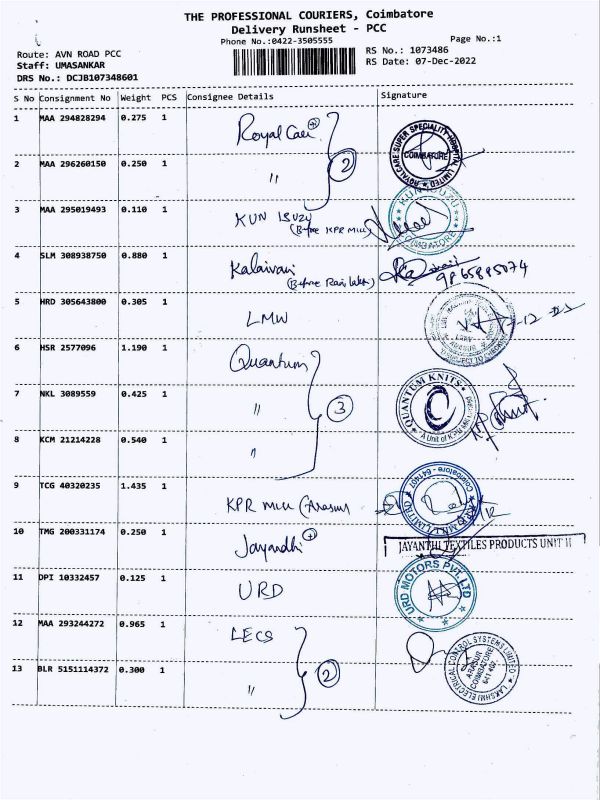 THE PROFESSIONAL COURIERS, Coimbatore
Delivery Runsheet - PCC
Phone No.:0422-3505555
Page No.:1
Route: AVN ROAD PCC
RS No.: 1073486
Staff: UMASANKAR
RS Date: 07-Dec-2022
DRS No.: DCJB107348601
S No Consignment No Weight PCS Consignee Details Signature
1 MAA 294828294 0.275 1 Royal Care
ROYALCARE SUPER SPECIALITY HOSPITAL LIMITED
COIMBATORE
2 MAA 296260150 0.250 1 "
2
3 MAA 295019493 0.110 1 KUN ISUZU
(Before KPR Mill)
KUN ISUZU
COIMBATORE
4 SLM 308938750 0.880 1 Kalaivani
(Before Rani
9865895074
5 HRD 305643800 0.305 1 LMW
6 HSR 2577096 1.190 1 Quantum
7 NKL 3089559 0.425 1 "
3
QUANTUM KNITS
A Unit of KPR Mill
8 KCM 21214228 0.540 1 "
9 TCG 40320235 1.435 1 KPR Mill (Arasur
Coimbatore - 641407
MILL LIMITED
10 TMG 200331174 0.250 1 Jayandhi
JAYANTHI TEXTILES PRODUCTS UNIT II
11 DPI 10332457 0.125 1 URD
URD MOTORS PVT. LTD
12 MAA 293244272 0.965 1 LECS
LAKSHMI ELECTRICAL CONTROL SYSTEMS LIMITED
ARASUR
COIMBATORE
641 407
13 BLR 5151114372 0.300 1 "
2